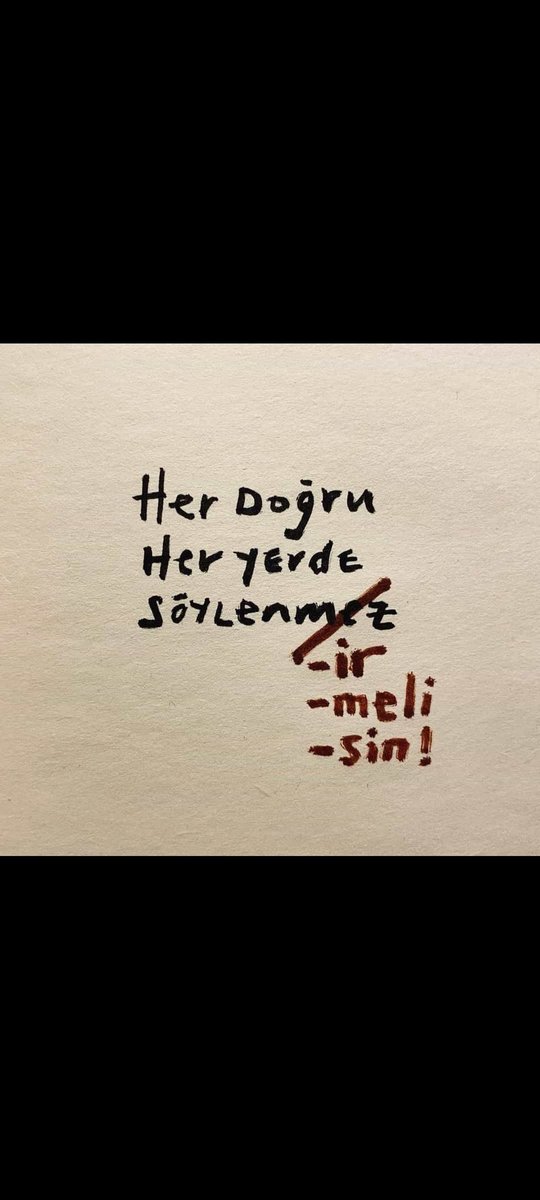 Her Doğru
Her yerde
söylenmez
-ir
-meli
-sin!